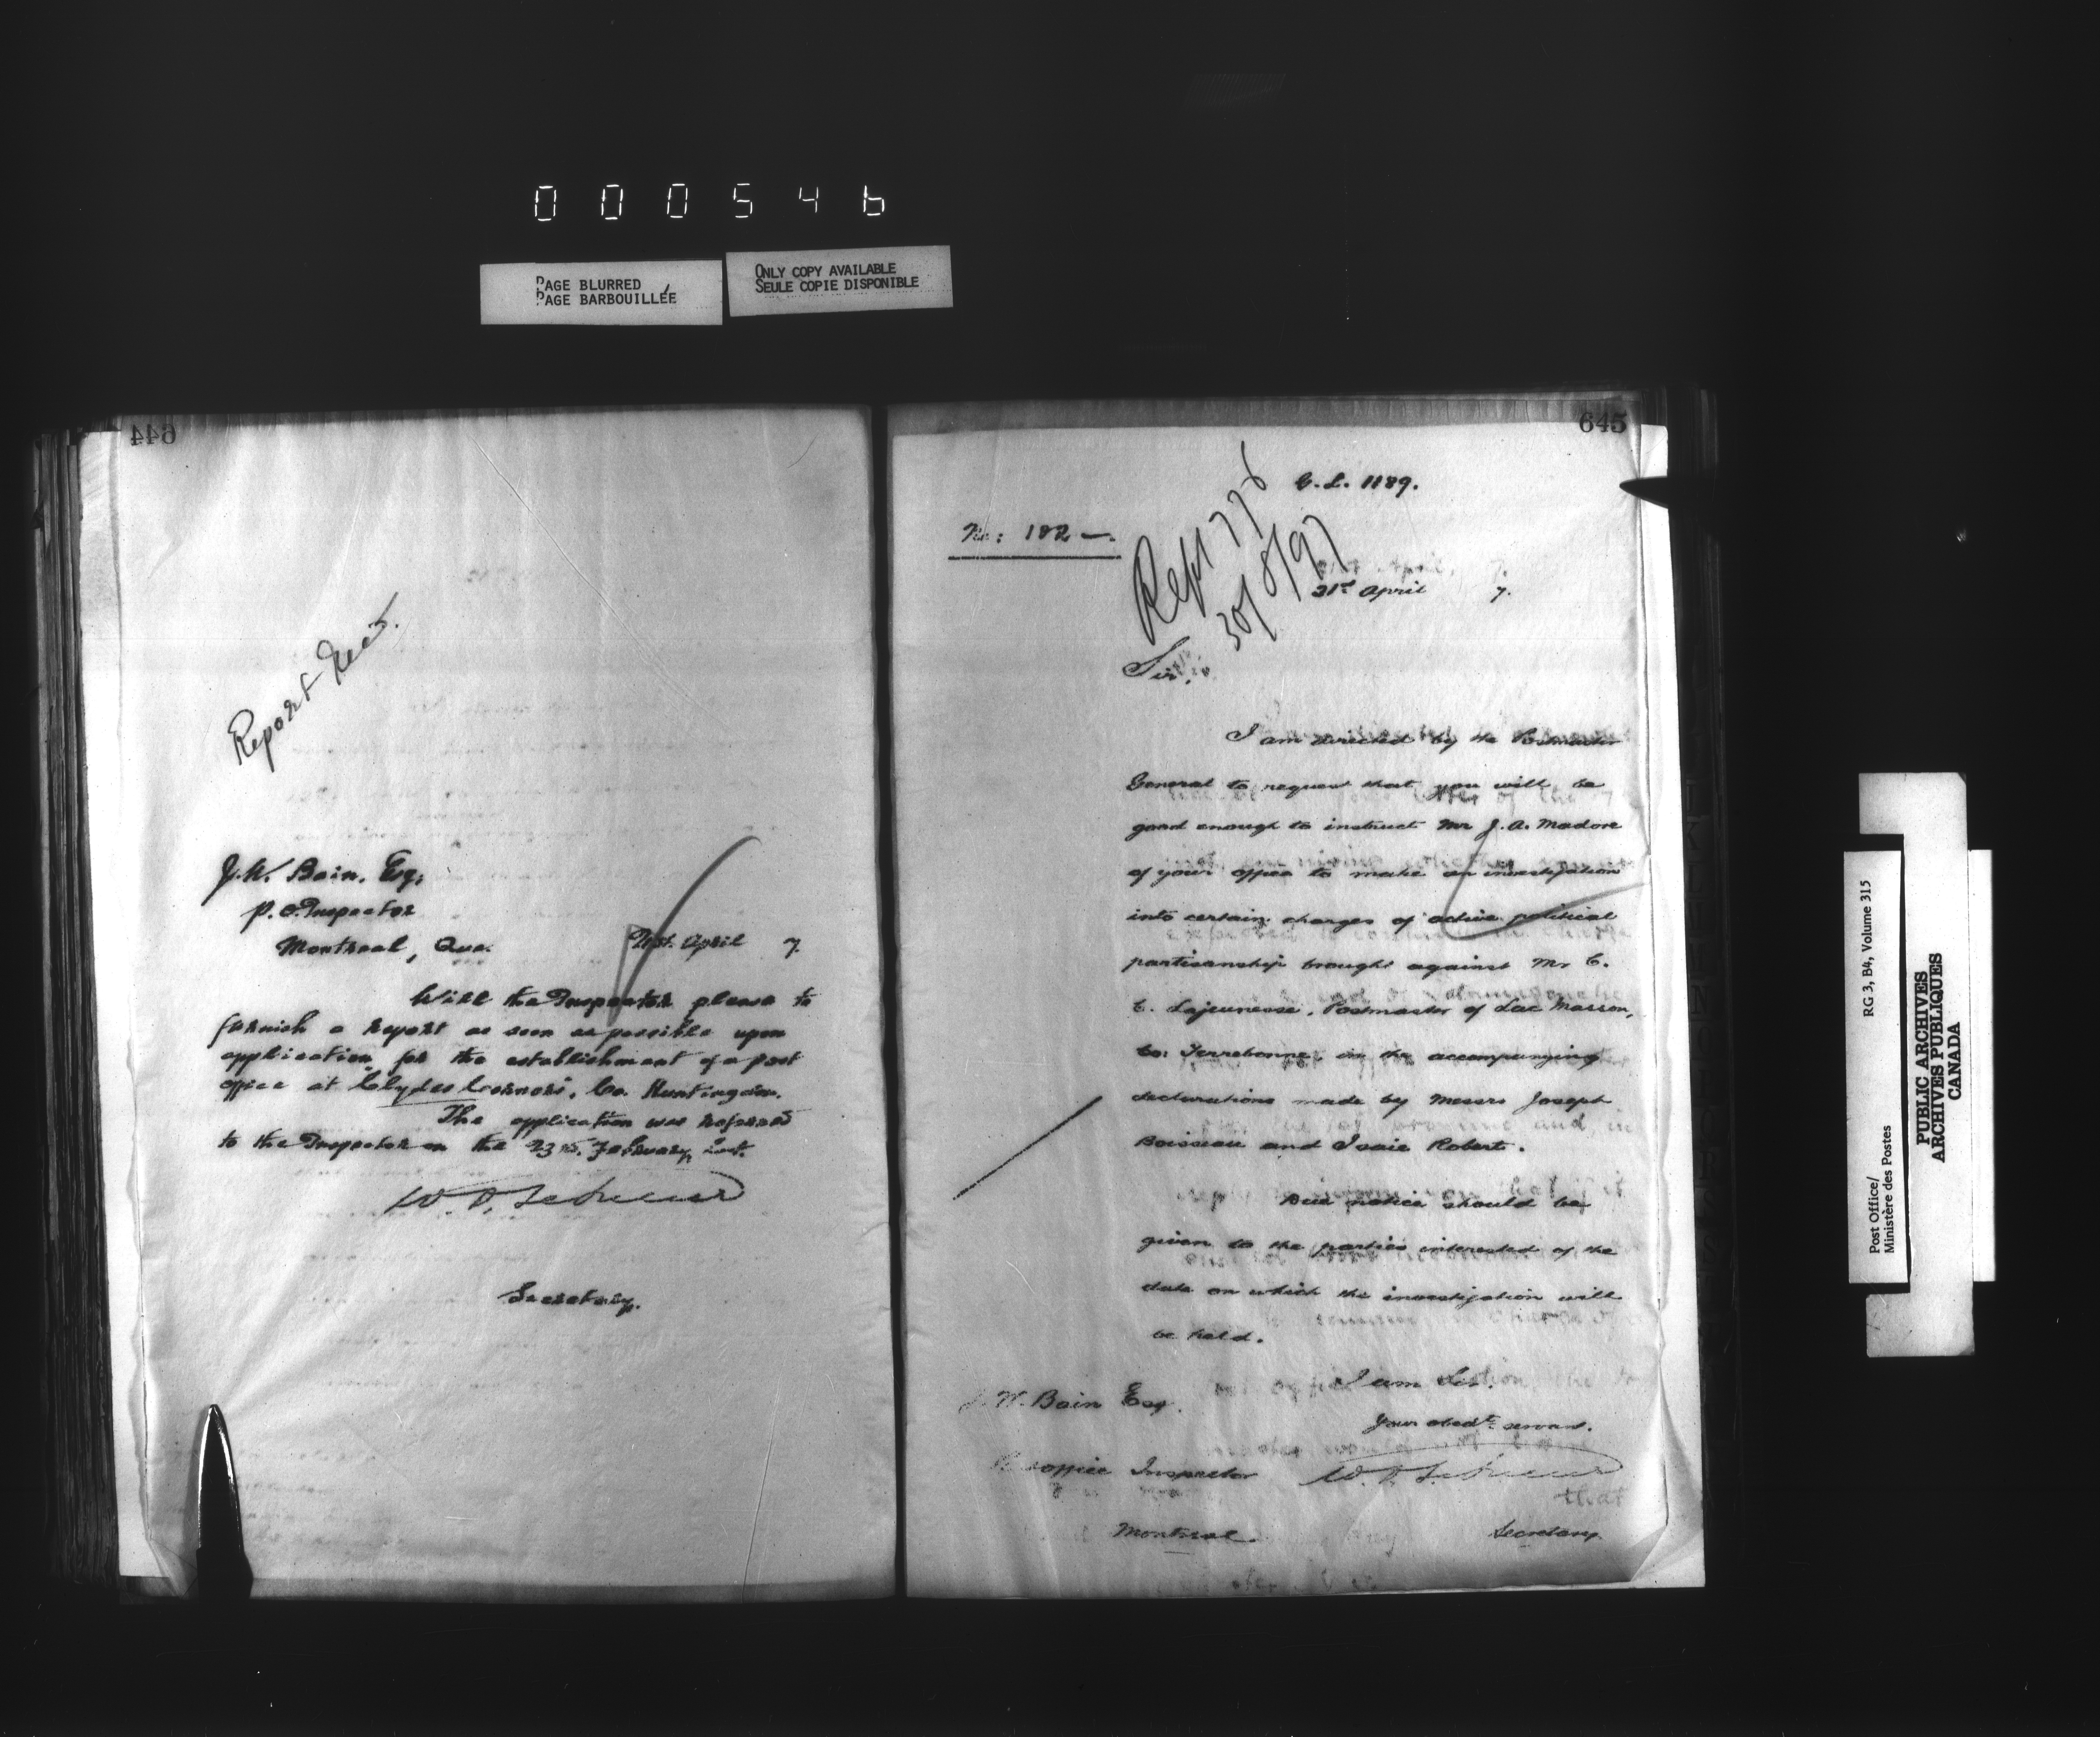 000546
PAGE BLURRED
PAGE BARBOUILLÉE
ONLY COPY AVAILABLE
SEULE COPIE DISPONIBLE
644
Report Recd.
J. W. Bain, Esq,
P. O. Inspector
Montreal, Que.
21st. April 7.
Will the Inspector please to
furnish a report as soon as possible upon
application for the establishment of a post
office at Clydes Corners, Co. Huntingdon.
The application was referred
to the Inspector on the 23rd. February last.
Secretary.
645
C. L. 1189.
No: 182 —.
Rept 776
30/8/97
21st April 7.
Sir,
I am directed by the Postmaster
General to request that you will be
good enough to instruct Mr J. A. Madore
of your office to make an investigation
into certain charges of active political
partisanship brought against Mr C.
E. Lajeunesse, Postmaster of Lac Masson,
Co: Terrebonne, in the accompanying
declarations made by Messrs Joseph
Boisseau and Isaie Robert.
Due notice should be
given to the parties interested of the
date on which the investigation will
be held.
I am Sir.
Your obedt. servant.
W. Bain Esq.
office Inspector
Montreal.
Secretary
that
Post Office/
Ministère des Postes
RG 3, B4, Volume 315
PUBLIC ARCHIVES
ARCHIVES PUBLIQUES
CANADA